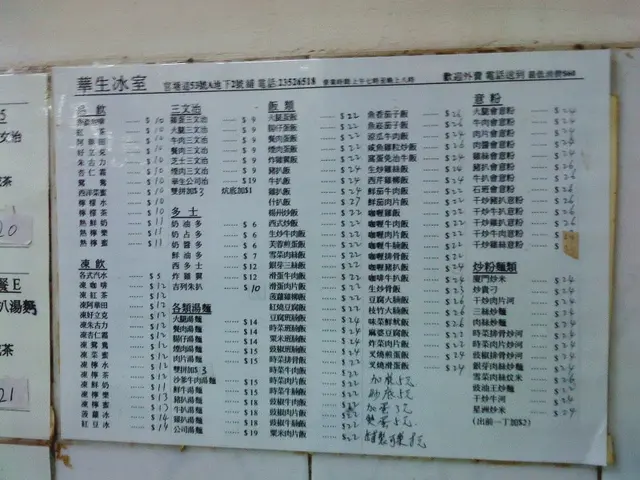 華生冰室
官塘道53號A地下2號舖 電話:23526518
營業時間上午七時至晚上八時
歡迎外賣 電話送到 最低消費$60
熱飲
香濃咖啡 $10
紅茶 $10
阿華田 $10
好立克 $10
朱古力 $10
杏仁霜 $10
鴛鴦 $10
西洋菜蜜 $10
檸檬水 $10
檸檬茶 $10
熱鮮奶 $11
熱檸樂 $11
熱檸蜜 $11
凍飲
各式汽水 $5
凍咖啡 $12
凍紅茶 $12
凍阿華田 $12
凍好立克 $12
凍朱古力 $12
凍杏仁霜 $12
凍鴛鴦 $12
凍菜蜜 $12
凍檸水 $12
凍檸茶 $12
凍鮮奶 $11
凍檸樂 $13
凍檸蜜 $13
菠蘿冰 $14
紅豆冰 $14
三文治
雞蛋三文治 $9
火腿三文治 $9
牛肉三文治 $9
餐肉三文治 $9
煙肉三文治 $9
芝士三文治 $9
煙肉三文治 $9
華生公司治 $19
雙拼加$3 烘底加$1
多士
奶油多 $6
奶占多 $6
奶醬多 $6
鮮油多 $7
西多士 $12
炸雞翼 $12
吉列朱扒 $10
各類湯麵
火腿湯麵 $14
餐肉湯麵 $14
腸仔湯麵 $14
煙肉湯麵 $15
肉片湯麵 $15
雙拼加$3
沙爹牛肉湯麵 $15
鮮牛湯麵 $15
豬扒湯麵 $18
牛扒湯麵 $18
雞扒湯麵 $18
公司湯麵 $19
飯類
火腿蛋飯 $22
腸仔蛋飯 $22
餐肉蛋飯 $22
煙肉蛋飯 $22
炸雞翼飯 $22
豬扒飯 $22
牛扒飯 $22
雞扒飯 $22
什扒飯 $27
楊州炒飯 $22
西式炒飯 $22
生炒牛肉飯 $22
芙蓉煎蛋飯 $22
雪菜肉絲飯 $22
銀芽三絲飯 $22
滑蛋牛肉飯 $22
滑蛋肉片飯 $22
菠蘿雞柳飯 $22
紅燒豆腐飯 $22
豆腐火腩飯 $22
時菜火腩飯 $22
時菜班腩飯 $22
粟米班腩飯 $22
豉椒班腩飯 $22
時菜排骨飯 $22
時菜牛肉飯 $22
時菜肉片飯 $22
豉椒牛肉飯 $22
豉椒肉片飯 $22
粟米肉片飯 $22
魚香茄子飯
魚崧茄子飯
涼瓜牛肉飯
咸魚雞粒炒飯
窩蛋免治牛飯
生炒雞絲飯
西芹雞柳飯
鮮茄牛肉飯
鮮茄肉片飯
咖喱雞飯
咖喱牛肉飯
咖喱肉片飯
咖喱牛腩飯
咖喱排骨飯
咖喱豬扒飯
咖喱牛扒飯
生炒骨飯
豆腐火腩飯
枝竹火腩飯
味菜鮮魷飯
麻婆豆腐飯
炸菜肉片飯
叉燒煎蛋飯
叉燒滑蛋飯
加底5元
加蛋3元
雙蛋5元
意粉
火腿會意粉 $24
牛肉會意粉 $24
肉片會意粉 $24
肉醬會意粉 $24
雞絲會意粉 $24
豬扒會意粉
牛扒會意粉
石班會意粉
干炒豬扒意粉
干炒牛扒意粉
干炒牛肉意粉
干炒雞絲意粉
炒粉麵類
廈門炒米 $24
炒貴刁 $24
干炒肉片河 $24
三絲炒麵 $24
肉絲炒麵 $24
時菜排骨炒河 $24
時菜肉片炒河 $24
豉椒排骨炒河 $24
銀芽肉絲炒麵 $24
雪菜肉絲炆米
豉油王炒麵 $24
干炒牛河 $24
星洲炒米 $24
(出前一丁加$2)